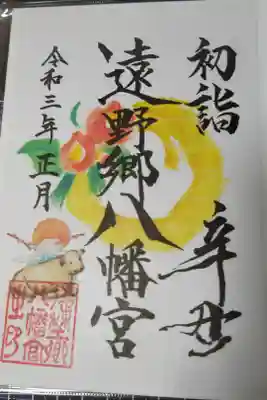 初詣 辛丑
遠野郷八幡宮
令和三年 正月